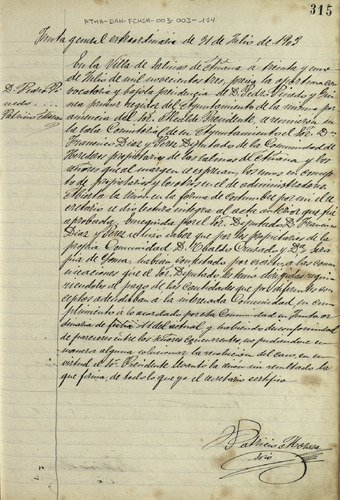 ATHA-DAH-FCHSA-003-003-114
315
Junta general extraordinaria de 31 de Julio de 1903
En la Villa de Salinas de Añana a treinta y uno
de Julio de mil novecientos tres, previa la oportuna con
vocatoria y bajo la presidencia de D. Pedro
primer regidor del Ayuntamiento de la misma por
ausencia del Sr. Alcalde Presidente, se reunieron en
la Sala Consistorial de este Ayuntamiento el Sr. D.
Francisco Diaz y Perez Diputado de la Comunidad de
Herederos propietarios de las Salinas de Añana y los
Señores que al margen se expresan, los unos en concep
to de propietarios y los otros en el de administradores.
Abierta la sesion en la forma de costumbre por mi el se
cretario se dio lectura integra al acta anterior que fue
aprobada, enseguida por el Sr. Diputado D. Francisco
Diaz y Perez se hizo saber que los propietarios de la
propia Comunidad D. Ubaldo y Dª
de habian contestado por escrito a las comu
nicaciones que el Sr. Diputado le tiene dirigidas requi
riendoles al pago de las cantidades que por diferentes con
ceptos adeudaban a la Comunidad, en cum
plimiento a lo acordado por esta Comunidad en Junta or
dinaria de fecha 11 del actual y habiendo disconformidad
de pareceres entre los Señores concurrentes, no pudiendo en
manera alguna solucionar la resolucion del caso, en su
virtud el Sr. Presidente levanto la sesion sin resultado la
que firma, de todo lo que yo el secretario certifico.
D. Pedro
Patricio
Patricio